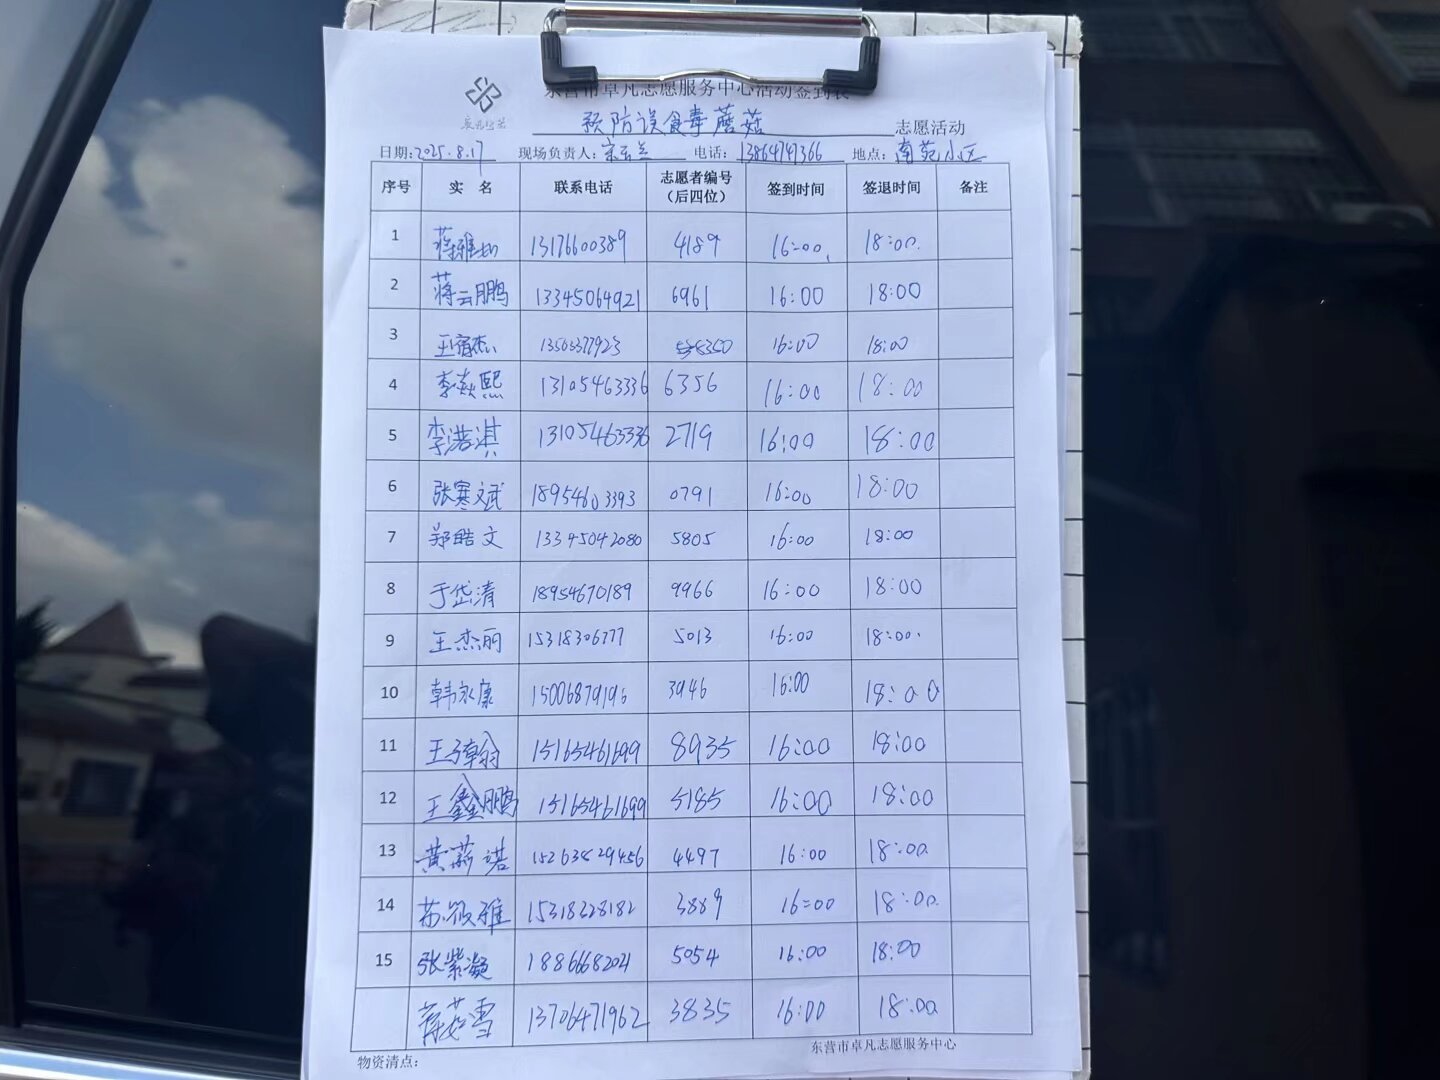 东营市卓凡志愿服务中心活动签到表
预防误食毒蘑菇 志愿活动
日期:2025.8.17 现场负责人: 电话:13864741366 地点:南苑小区
序号 实 名 联系电话 志愿者编号（后四位） 签到时间 签退时间 备注
1 13176600389 4189 16:00 18:00
2 蒋云鹏 13345064921 6961 16:00 18:00
3 16:00 18:00
4 李焱熙 13105463336 6356 16:00 18:00
5 李浩淇 13105463336 2719 16:00 18:00
6 张寒斌 18954603393 0791 16:00 18:00
7 郑皓文 13345042080 5805 16:00 18:00
8 于岱清 18954670189 9966 16:00 18:00
9 王杰丽 15318306777 5013 16:00 18:00
10 韩永康 15006879196 3946 16:00 18:00
11 15165461699 8935 16:00 18:00
12 王鑫鹏 15165461699 5185 16:00 18:00
13 黄荔诺 4497 16:00 18:00
14 苏筱雅 15318328182 3889 16:00 18:00
15 张紫凝 5054 16:00 18:00
蒋茹雪 13706471962 3835 16:00 18:00
物资清点: 东营市卓凡志愿服务中心